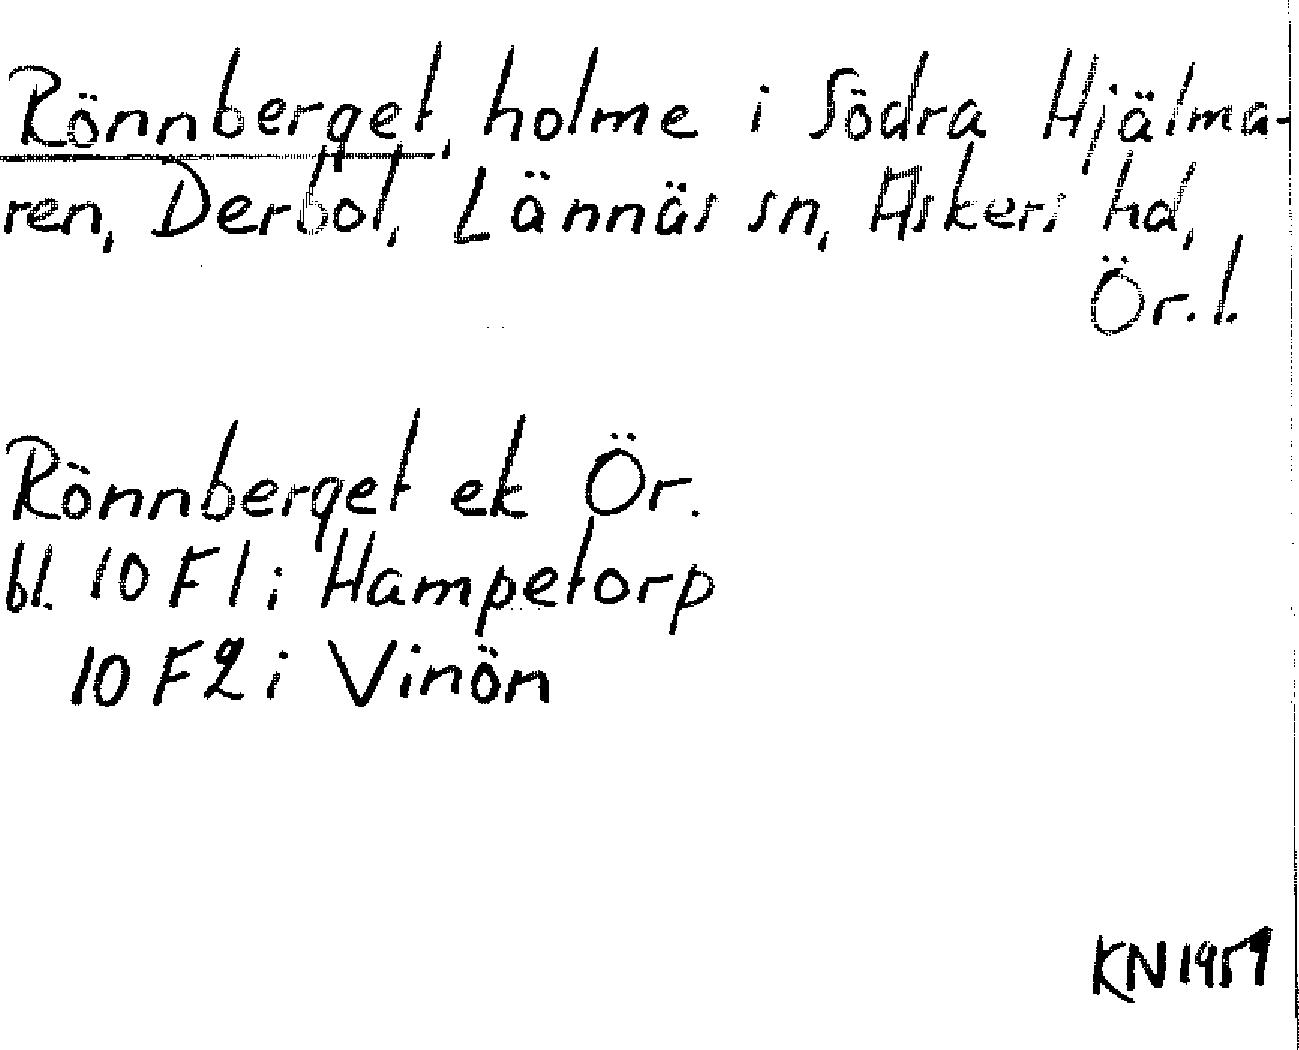 Rönnberget, holme i Södra Hjälma-
ren, Derbol, Lännäs sn, Askers hd,
Ör. l.
Rönnberget ek Ör.
bl. 10 F1 i Hampetorp
10 F2 i Vinön
KN